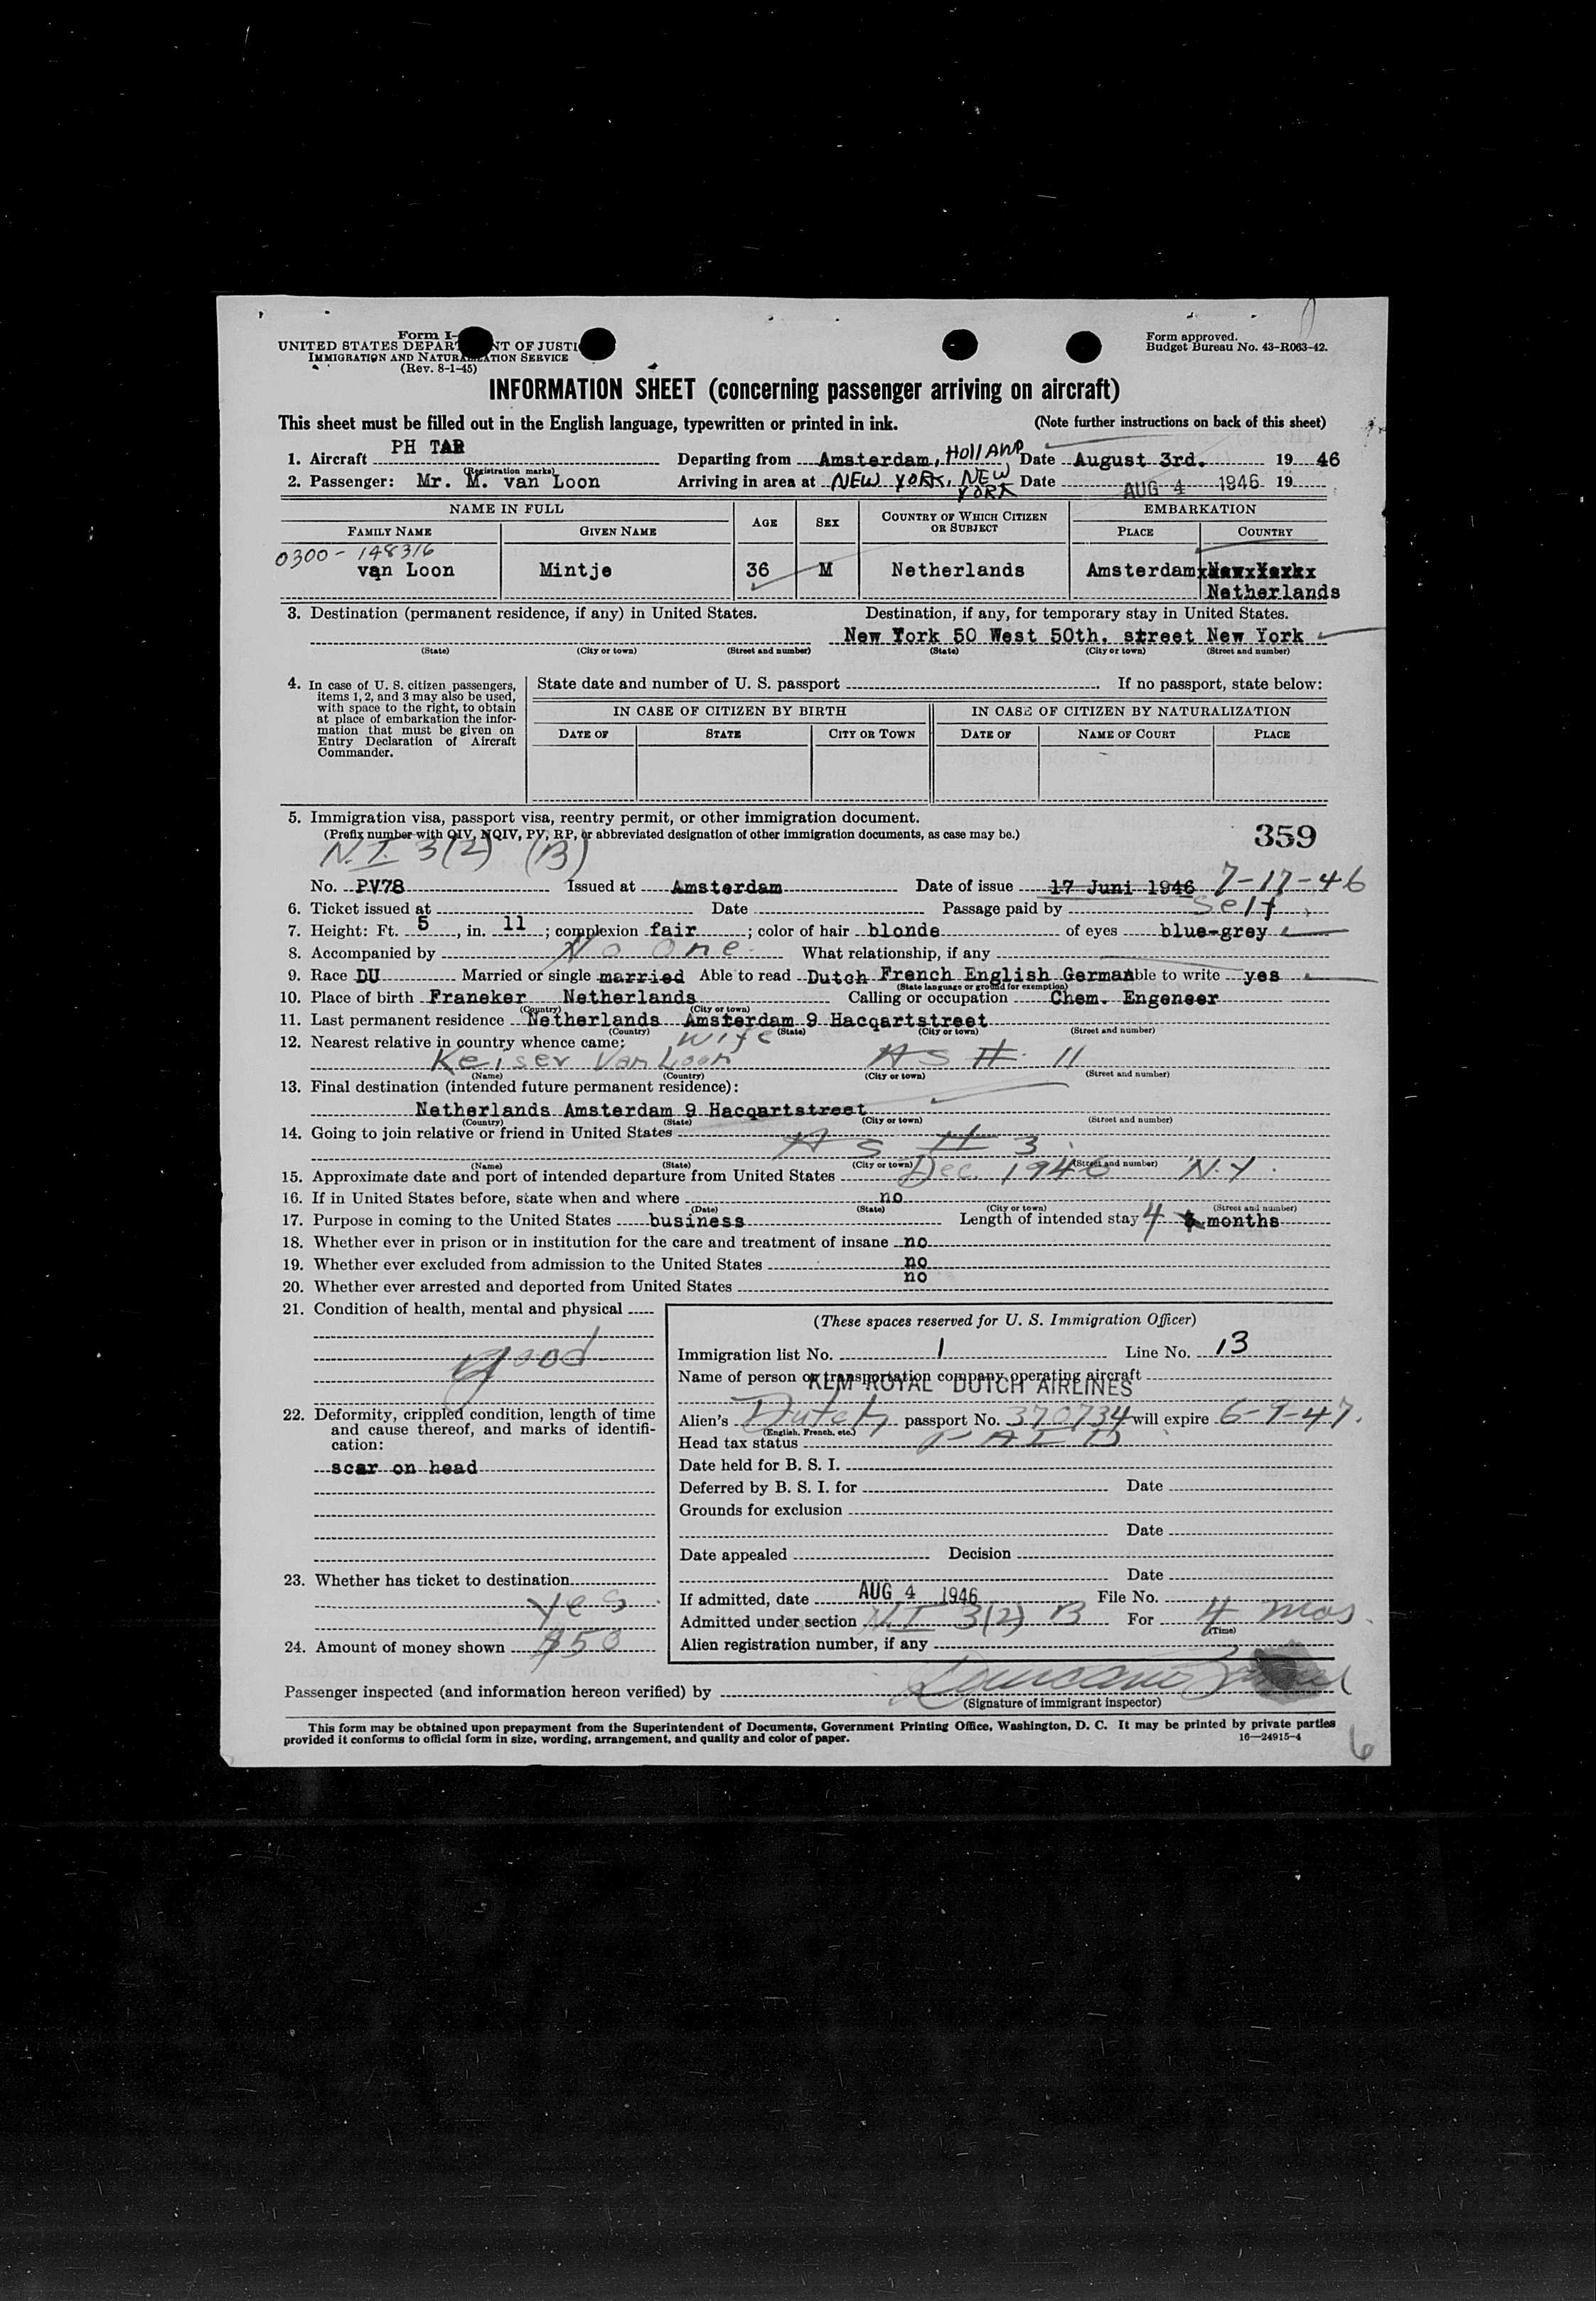 Form I-
UNITED STATES DEPARTMENT OF JUSTI
IMMIGRATION AND NATURALIZATION SERVICE
(Rev. 8-1-45)
Form approved.
Budget Bureau No. 43-R063-42.
INFORMATION SHEET (concerning passenger arriving on aircraft)
This sheet must be filled out in the English language, typewritten or printed in ink. (Note further instructions on back of this sheet)
1. Aircraft PH TAR Departing from Amsterdam, HOLLAND Date August 3rd. 19 46
(Registration marks)
2. Passenger: Mr. M. van Loon Arriving in area at NEW YORK, NEW YORK Date AUG 4 1946 19
NAME IN FULL AGE SEX COUNTRY OF WHICH CITIZEN OR SUBJECT EMBARKATION
FAMILY NAME GIVEN NAME PLACE COUNTRY
0300-148316
van Loon Mintje 36 M Netherlands Amsterdam
Netherlands
3. Destination (permanent residence, if any) in United States. Destination, if any, for temporary stay in United States.
New York 50 West 50th. street New York
(State) (City or town) (Street and number) (State) (City or town) (Street and number)
4. In case of U. S. citizen passengers, items 1, 2, and 3 may also be used, with space to the right, to obtain at place of embarkation the information that must be given on Entry Declaration of Aircraft Commander.
State date and number of U. S. passport If no passport, state below:
IN CASE OF CITIZEN BY BIRTH IN CASE OF CITIZEN BY NATURALIZATION
DATE OF STATE CITY OR TOWN DATE OF NAME OF COURT PLACE
5. Immigration visa, passport visa, reentry permit, or other immigration document.
(Prefix number with QIV, NQIV, PV, RP, or abbreviated designation of other immigration documents, as case may be.) 359
N.I. 3(2) (B)
No. PV78 Issued at Amsterdam Date of issue 17 Juni 1946 7-17-46
6. Ticket issued at Date Passage paid by Self
7. Height: Ft. 5, in. 11; complexion fair; color of hair blonde of eyes blue-grey
8. Accompanied by No One What relationship, if any
9. Race DU Married or single married Able to read Dutch French English German Able to write yes
(State language or ground for exemption)
10. Place of birth Franeker Netherlands Calling or occupation Chem. Engeneer
(Country) (City or town)
11. Last permanent residence Netherlands Amsterdam 9 Hacqartstreet
(Country) (State) (City or town) (Street and number)
12. Nearest relative in country whence came: Wife
Keiser Van Loon As # 11
(Name) (Country) (City or town) (Street and number)
13. Final destination (intended future permanent residence):
Netherlands Amsterdam 9 Hacqartstreet
(Country) (State) (City or town) (Street and number)
14. Going to join relative or friend in United States
As # 3
(Name) (State) (City or town) (Street and number)
15. Approximate date and port of intended departure from United States Dec. 1946 N.Y.
16. If in United States before, state when and where no
(Date) (State) (City or town) (Street and number)
17. Purpose in coming to the United States business Length of intended stay 4 months
18. Whether ever in prison or in institution for the care and treatment of insane no
19. Whether ever excluded from admission to the United States no
20. Whether ever arrested and deported from United States no
21. Condition of health, mental and physical
good
22. Deformity, crippled condition, length of time and cause thereof, and marks of identification:
scar on head
23. Whether has ticket to destination
yes
24. Amount of money shown $50
(These spaces reserved for U. S. Immigration Officer)
Immigration list No. 1 Line No. 13
Name of person or transportation company operating aircraft
KLM ROYAL DUTCH AIRLINES
Alien's Dutch passport No. 370734 will expire 6-9-47.
(English, French, etc.)
Head tax status PAID
Date held for B. S. I.
Deferred by B. S. I. for Date
Grounds for exclusion
Date
Date appealed Decision
Date
If admitted, date AUG 4 1946 File No.
Admitted under section N.I 3(2) B For 4 mos.
(Time)
Alien registration number, if any
Passenger inspected (and information hereon verified) by
(Signature of immigrant inspector)
This form may be obtained upon prepayment from the Superintendent of Documents, Government Printing Office, Washington, D. C. It may be printed by private parties
provided it conforms to official form in size, wording, arrangement, and quality and color of paper. 16—24915-4
6